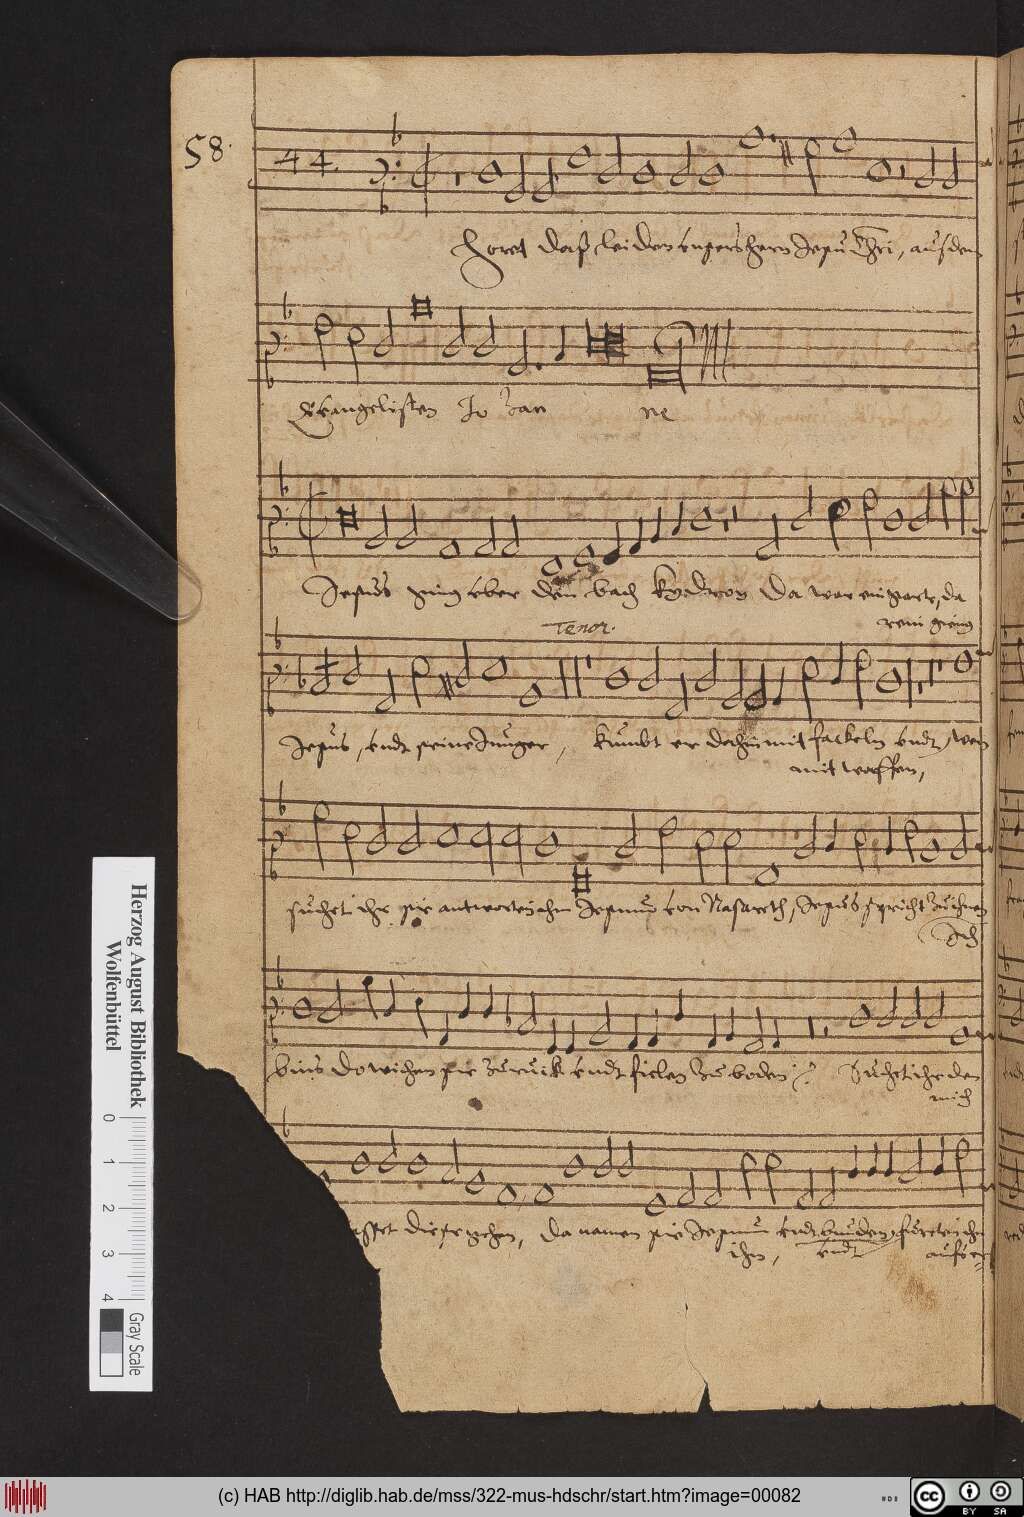 58.
44.
Horet daß leiden unsers hern Jesu Chri, aus dem
Evangelisten Jo han ne
Jesus ging vber den bach kydron Da war ein garte, da
rein gieng
Tenor.
Jesus, vndt seine Junger, kumbt er dahin mit fackeln vndt, wen
mit waffen,
suchet ihr sie antworten ihm Jesum von Nasareth, Jesus spricht zu ihnen
Ich
bins do wichen sie zuruck vndt fielen zu boden Suchet ihr den
mich
lasset diese gehen, da namen sie Jesum vndt bunden, fureten ihn
ihn, vndt aufs er
Herzog August Bibliothek
Wolfenbüttel
0 1 2 3 4
Gray Scale
(c) HAB http://diglib.hab.de/mss/322-mus-hdschr/start.htm?image=00082
cc BY SA